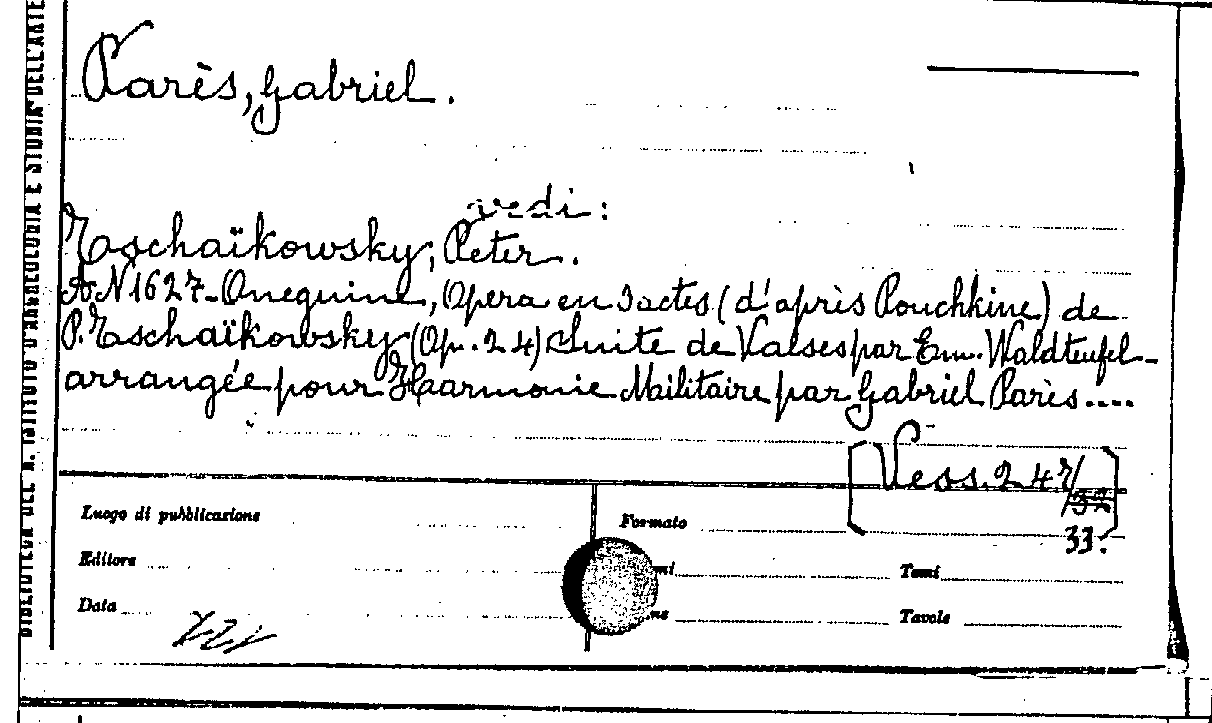 Parès, Gabriel.
vedi:
Tschaïkowsky, Peter.
AN1627-Oneguine, Opera en 3 actes (d'après Pouchkine) de
P. Tschaïkowsky (Op. 24) Suite de Valses par Em. Waldteufel-
arrangée pour Harmonie Militaire par Gabriel Parès....
[Vess. 247/32]
33.
Luogo di pubblicazione
Formato
Editore
Tomi
Data
Tavole
BIBLIOTECA DEL R. ISTITUTO D'ARCHEOLOGIA E STORIA DELL'ARTE